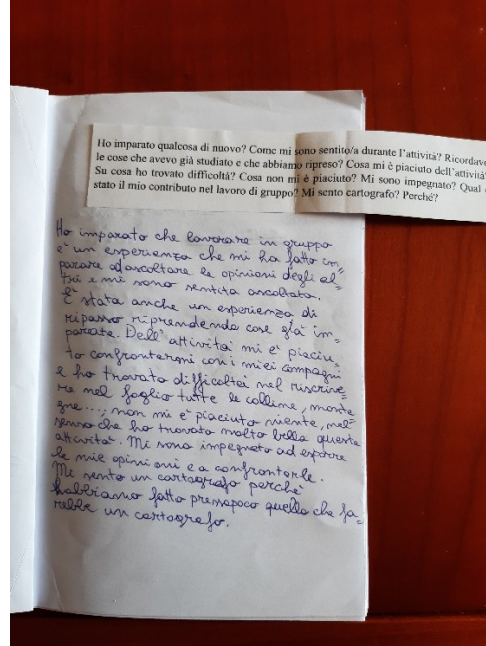 Ho imparato qualcosa di nuovo? Come mi sono sentito/a durante l'attività? Ricordavo
le cose che avevo già studiato e che abbiamo ripreso? Cosa mi è piaciuto dell'attività?
Su cosa ho trovato difficoltà? Cosa non mi è piaciuto? Mi sono impegnato? Qual
stato il mio contributo nel lavoro di gruppo? Mi sento cartografo? Perché?
Ho imparato che lavorare in gruppo
e' un esperienza che mi ha fatto im=
parare ad ascoltare le opinioni degli al=
tri e mi sono sentita ascoltata.
E' stata anche un esperienza di
ripasso riprendendo cose già im=
parate. Dell'attività mi e' piaciu=
to confrontarmi con i miei compagni
e ho trovato difficoltà nel riscrive=
re nel foglio tutte le colline, monta
gne...; non mi e' piaciuto niente, nel
senso che ho trovato molto bella questa
attività. Mi sono impegnata ad esporre
le mie opinioni e a confrontarle.
Mi sento un cartografo perché
habbiamo fatto pressapoco quello che fa=
rebbe un cartografo.